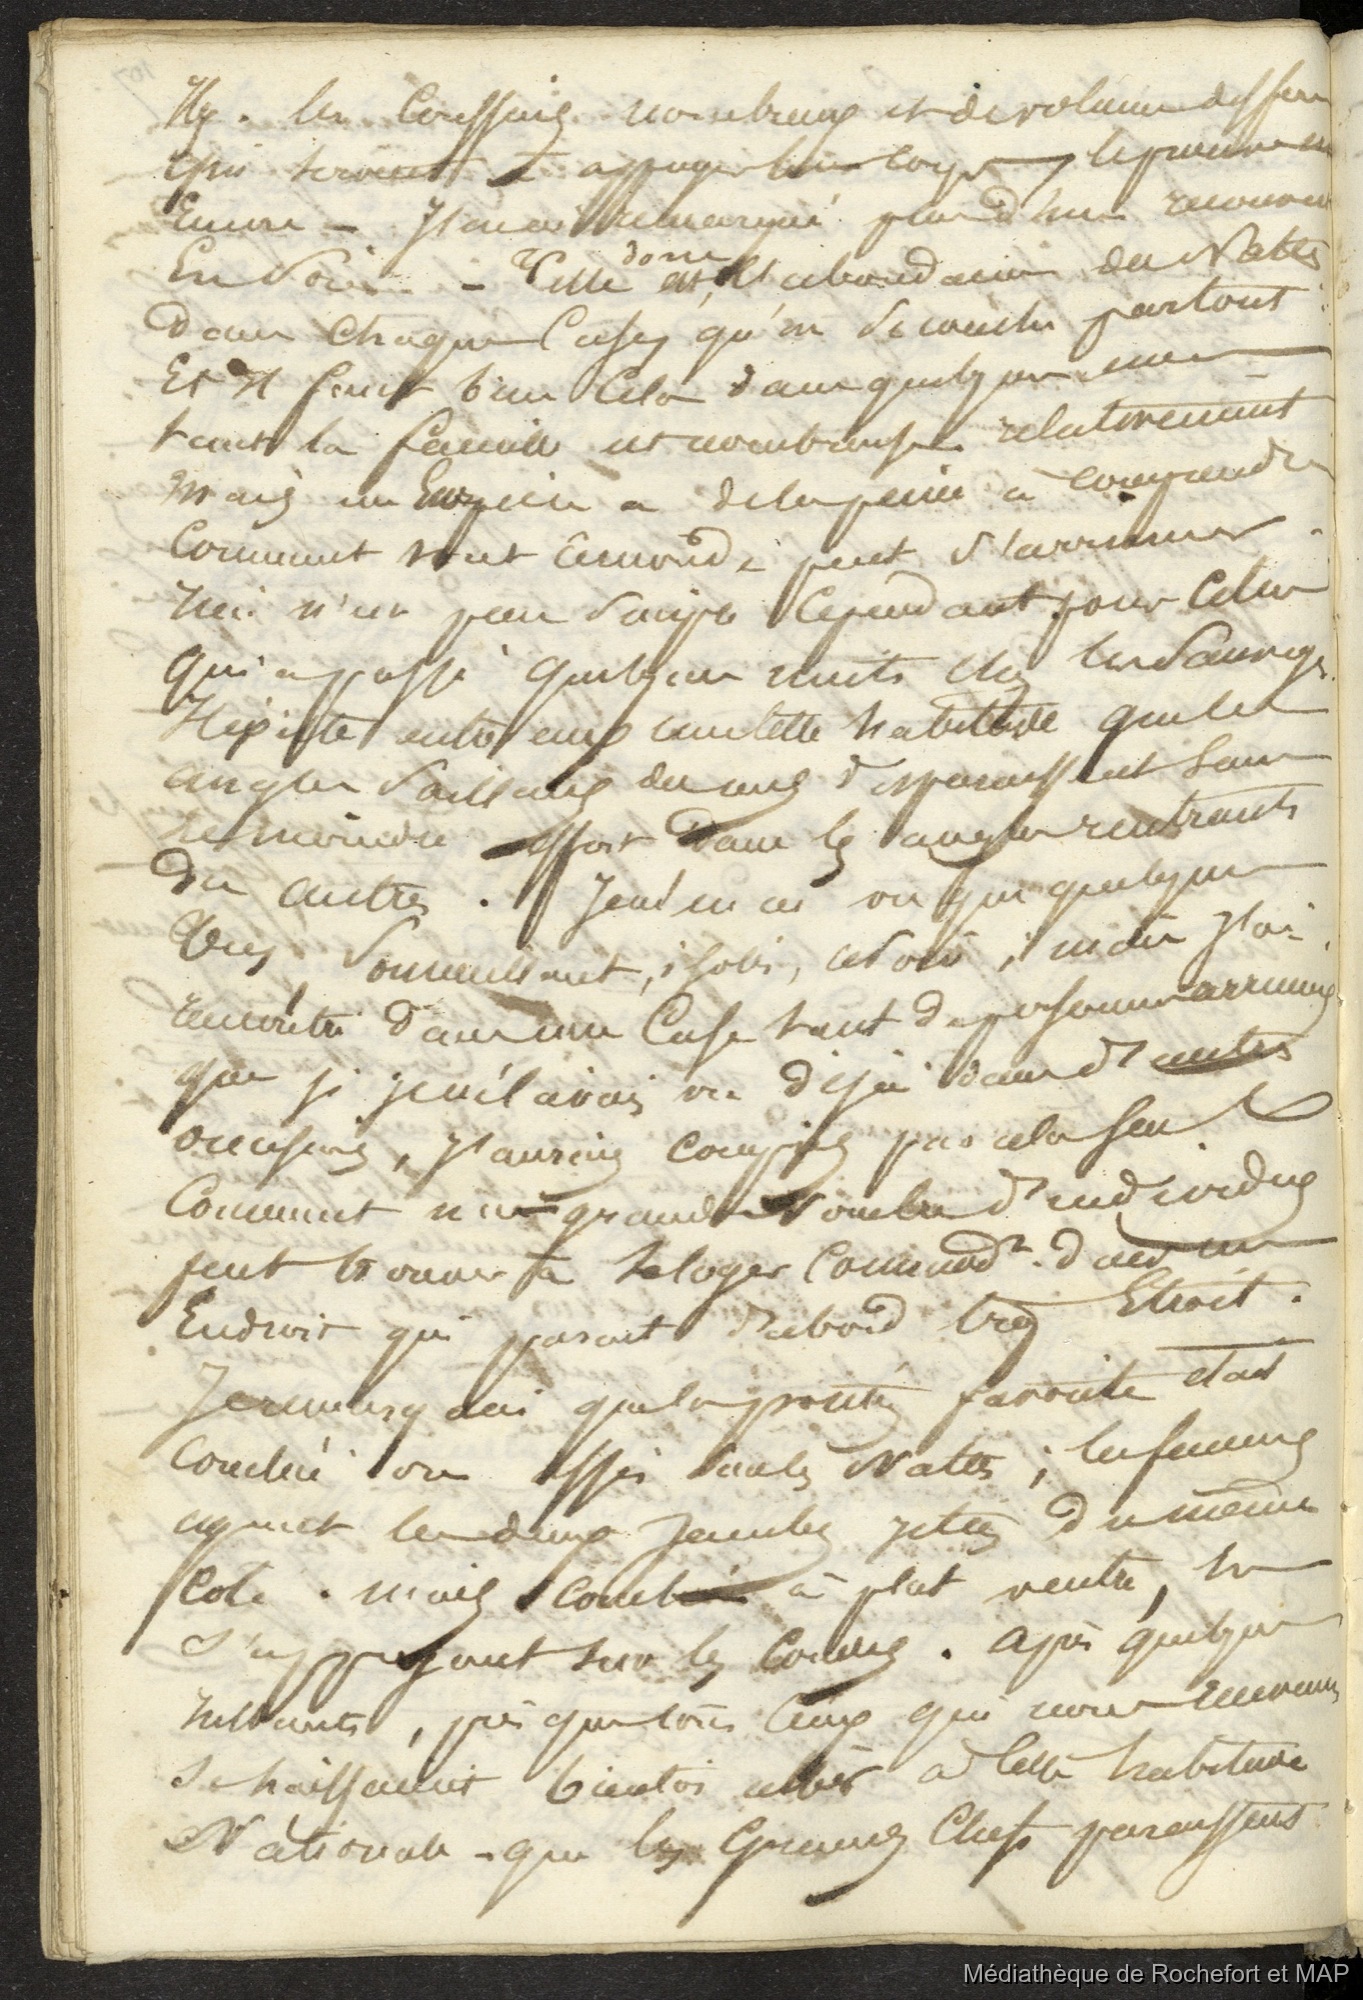 Ils . les Coussins nombreux et de volume différen
qui servent à appuyer leur corps, le prouvent
Encore - J'en ai remarqué plus d'une recouvert
En Soie. - Telle est donc l'abondance des Nattes
dans Chaque Case, qu'on se couche partout
Et Il faut bien Cela dans quelques unes
tant la famille est nombreuse relativement
Mais un Européen a de la peine à comprendre
Comment tout ce monde peut s'arrimer
Ici n'en pas Surpris Cependant pour Celui
qui a passé quelques nuits chez les Sauvages.
Il existe entre eux une telle habitude que les
angles Saillans des uns disparaissent Sans
le moindre effort dans les angles rentrants
des autres . Je n'en ai vu que quelques
Uns, Sommeillant, isolés, le soir ; mais J'ai
rencontré dans une Case tant de personnes arrimées
que si je ne l'avais vu déjà dans d'autres
occasions, J'aurais compris par cela seul
Comment un grand Nombre d'individus
peut trouver à se loger Commodt. dans un
Endroit qui parait d'abord très Etroit.
Je remarquai que la posture favorite était
Couché ou assis sur les Nattes ; les femmes
ayant les deux Jambes jetées du même
Coté . mais Couché à plat ventre,
s'appuyant sur les Coudes . Après quelques
Instants, presque tous Ceux qui nous
se laissaient bientôt aller à Cette habitude
Nationale - que les Grands Chefs paraissent
Médiathèque de Rochefort et MAP